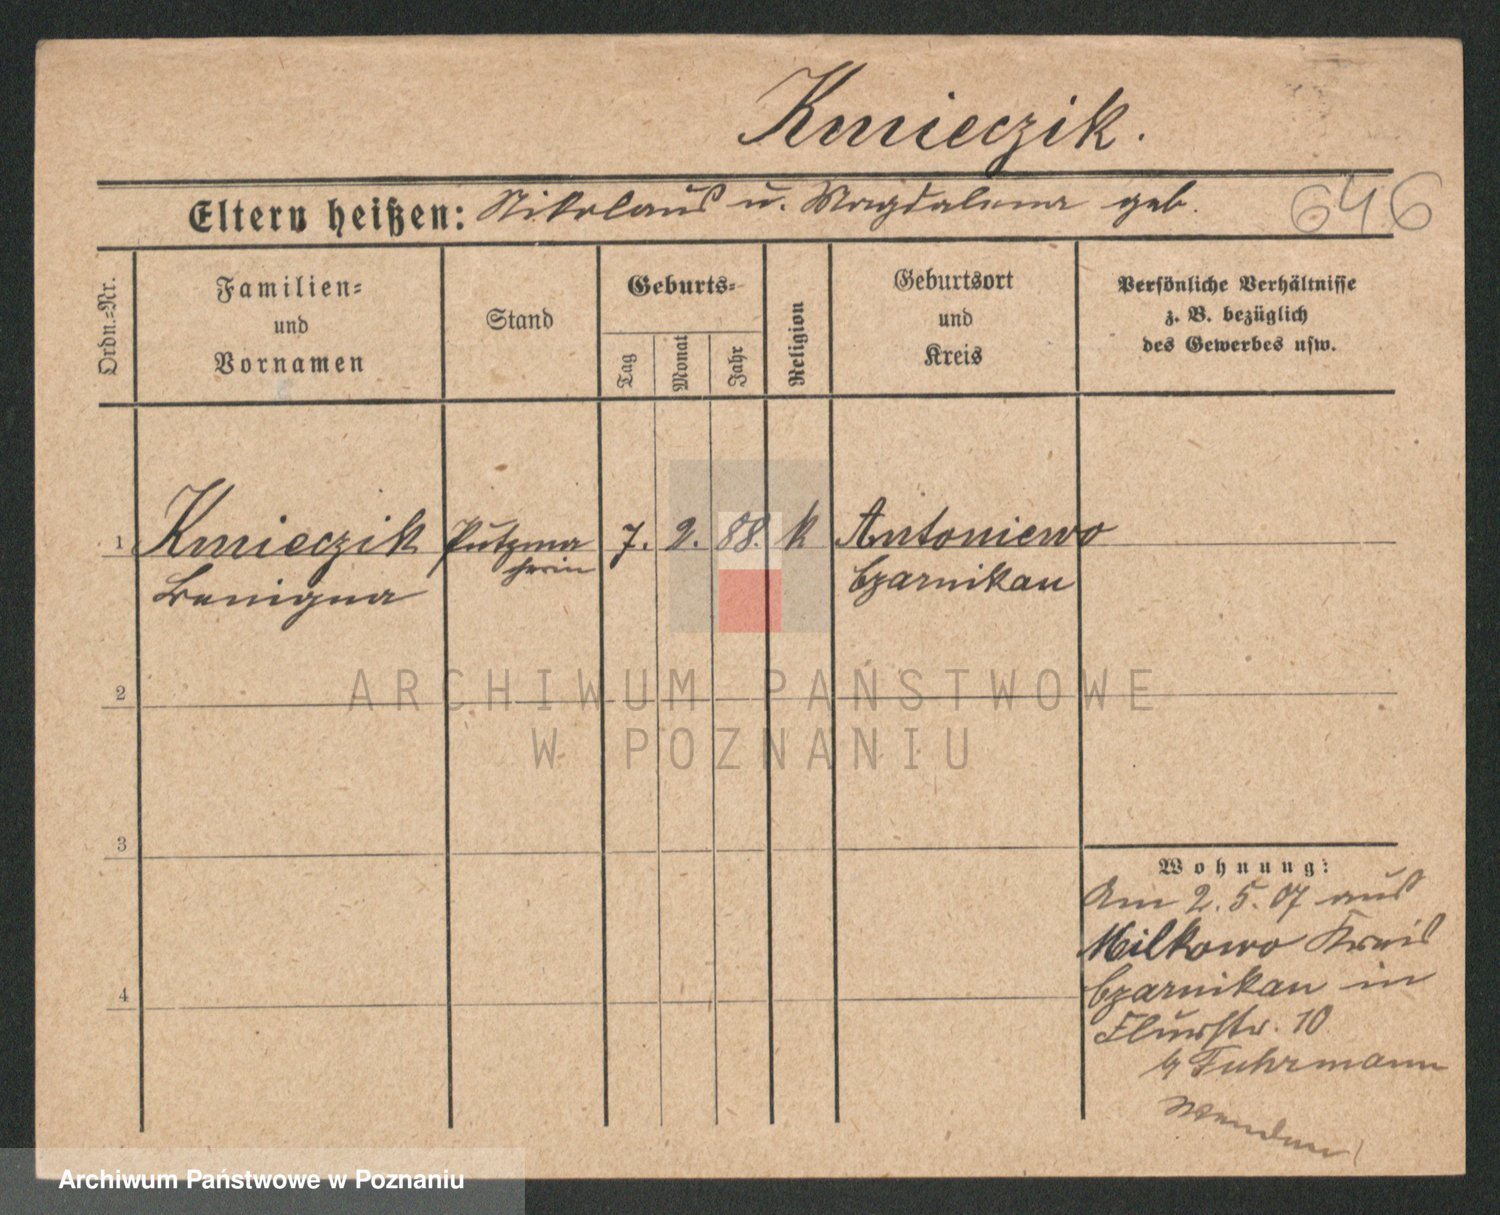 Kmieczik.
Eltern heißen: Nikolaus u. Magdalena geb.
646
Ordn.=Nr.
Familien=
und
Vornamen
Stand
Geburts=
Tag
Monat
Jahr
Religion
Geburtsort
und
Kreis
Persönliche Verhältnisse
z. B. bezüglich
des Gewerbes usw.
1 Kmieczik Putzma 7. 2. 88. k Antoniewo
Benigna cherin Czarnikau
2
3
4
Wohnung:
Am 2. 5. 07 aus
Milkowo Kreis
Czarnikau in
Flurstr. 10
b/ Fuhrmann
Wenden!
ARCHIWUM PAŃSTWOWE
W POZNANIU
Archiwum Państwowe w Poznaniu